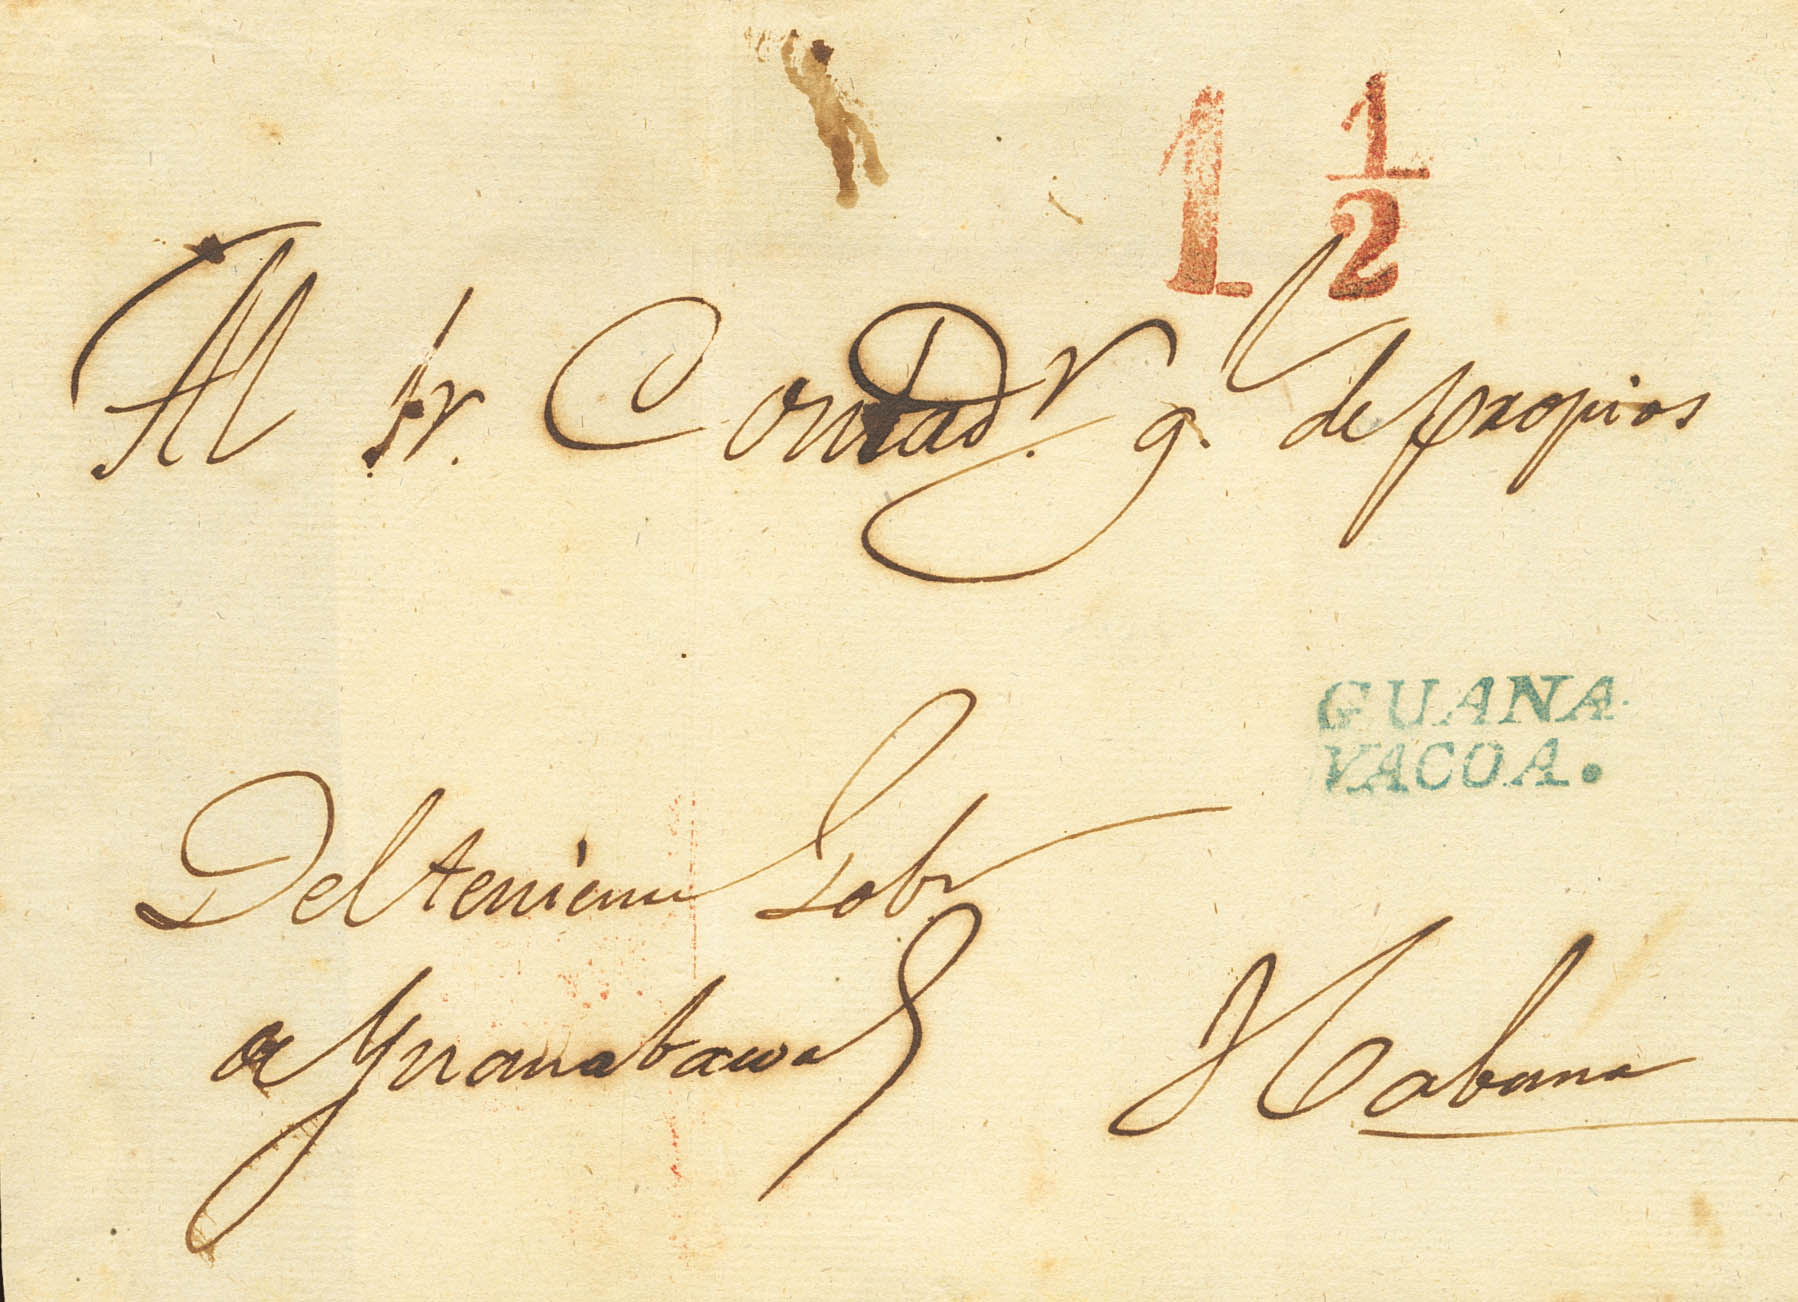 1 1/2
Al Sr. Contadr. gl. de propios
GUANA
VACOA.
Del teniente Gobr
de Guanabacoa
Habana